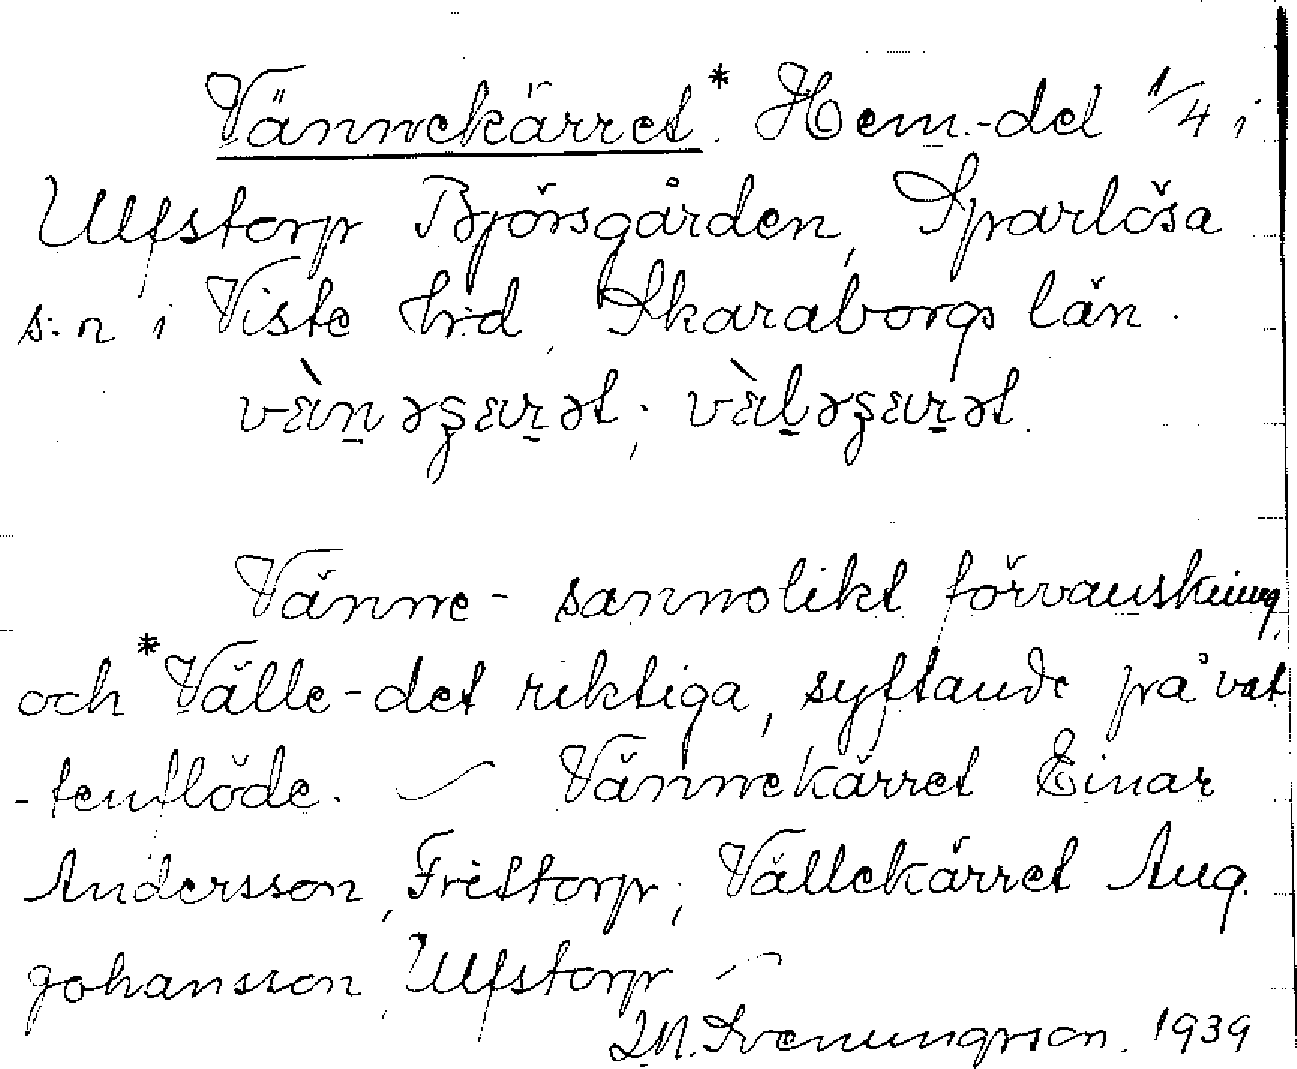 Vännekärret.* Hem.-del 1/4 i
Ulfstorp Björsgården, Sparlösa
s:n i Viste hrd, Skaraborgs län.
vɛ̀n̠əʂɛr̠ət; vɛ̀l̠əʂɛr̠ət.
Vänne- sannolikt förvanskning,
och *Välle- det riktiga, syftande på vat
-tenflöde. — Vännekärret Einar
Andersson, Fristorp; Vällekärret Aug.
Johansson, Ulfstorp —
Svenungsson. 1939